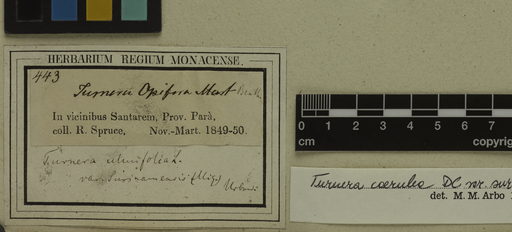 HERBARIUM REGIUM MONACENSE.
443
Turnera Opifera Mart
In vicinibus Santarem, Prov. Parà,
coll. R. Spruce, Nov.-Mart. 1849-50.
Turnera ulmifolia L.
var. Surinamensis (Miq) Urban
0 1 2 3 4 5 6 7 8 9 10
cm copyrig
Turnera caerulea DC var. sur
det. M. M. Arbo